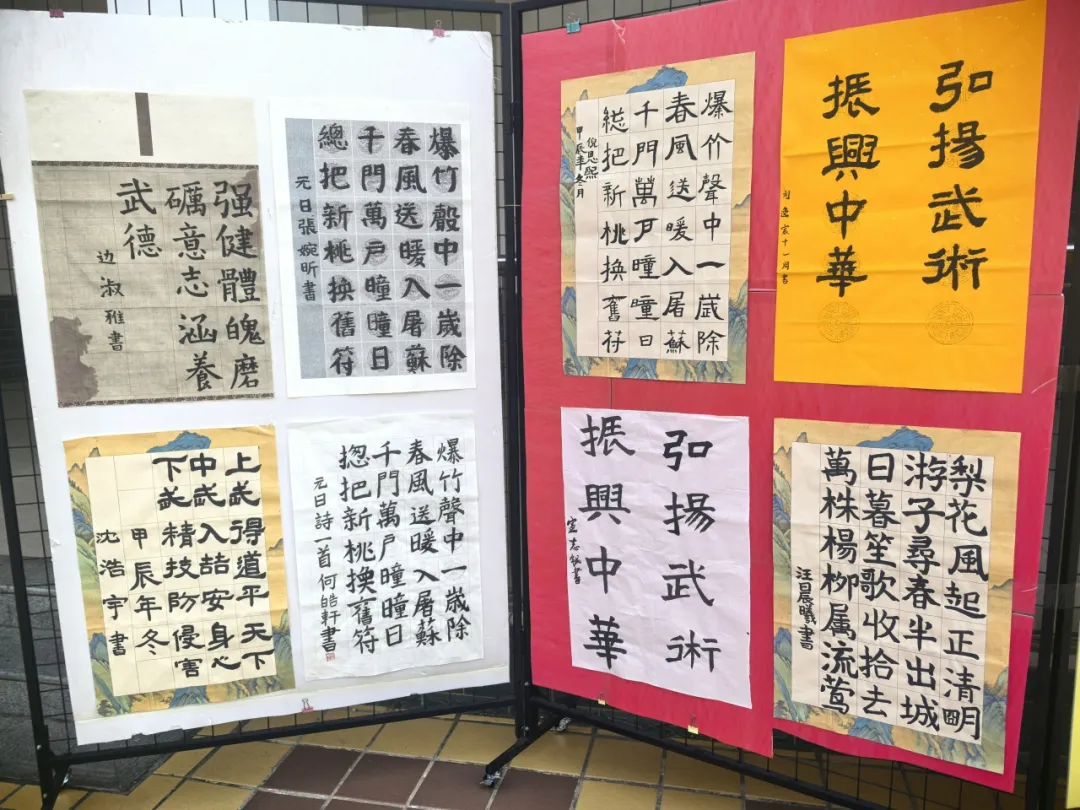 强健體魄磨
礪意志涵養
武德
边淑雅書
爆竹聲中一歲除
春風送暖入屠蘇
千門萬戶瞳瞳日
總把新桃換舊符
元日張婉昕書
上武得道平天下
中武入喆安身心
下武精技防侵害
甲辰年冬
沈浩宇書
爆竹聲中一歲除
春風送暖入屠蘇
千門萬戶瞳瞳日
揔把新桃換舊符
元日詩一首何皓軒書
爆竹聲中一歲除
春風送暖入屠蘇
千門萬戶瞳瞳日
総把新桃換舊符
倪思熙
甲辰年冬月
弘揚武術
振興中華
十一月書
弘揚武術
振興中華
書
梨花風起正清明
游子尋春半出城
日暮笙歌收拾去
萬株楊柳属流莺
汪晨曦書